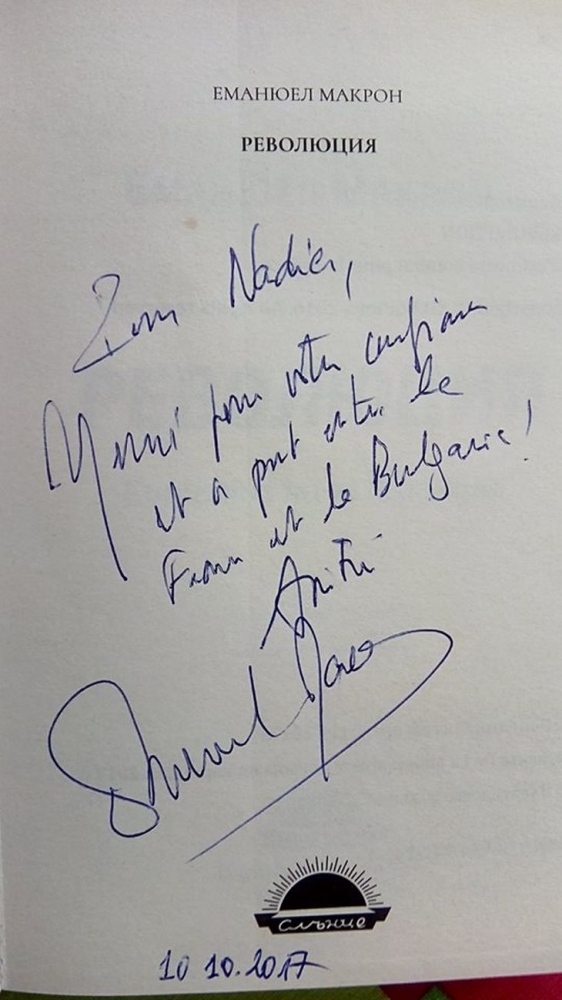 ЕМАНЮЕЛ МАКРОН
РЕВОЛЮЦИЯ
Pour Nadia,
Merci pour votre confiance
et ce pont entre la
France et la Bulgarie !
Amitié
Emmanuel Macron
слънце
10 10.2017